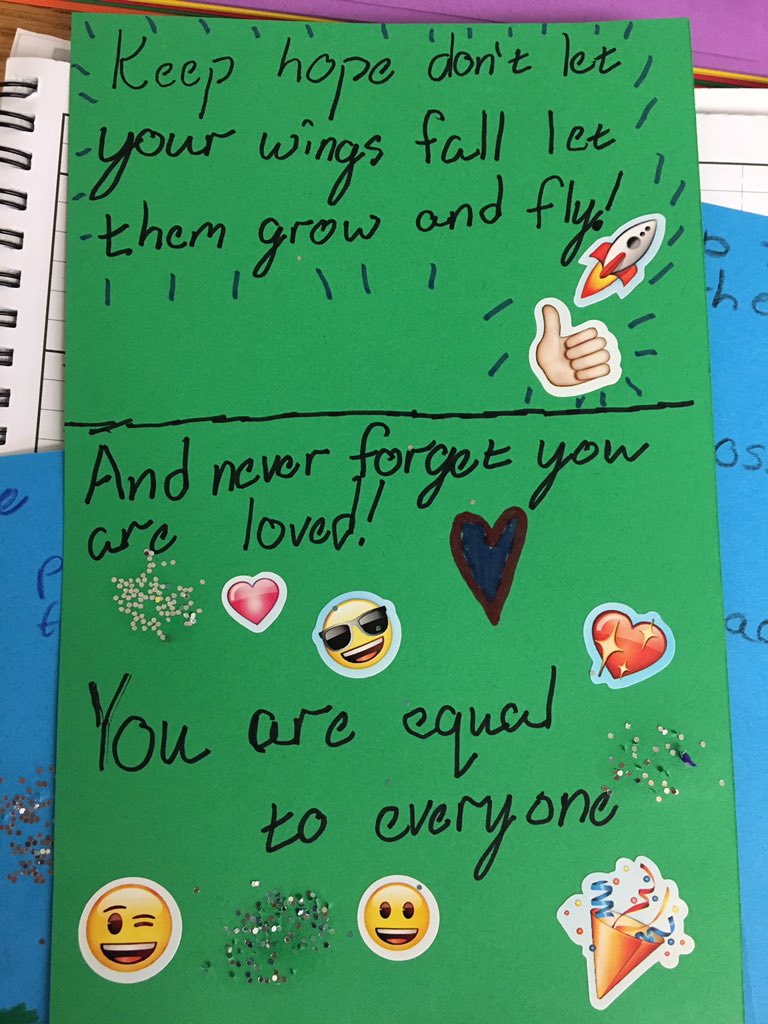 Keep hope don't let
your wings fall let
them grow and fly!
And never forget you
are loved!
You are equal
to everyone